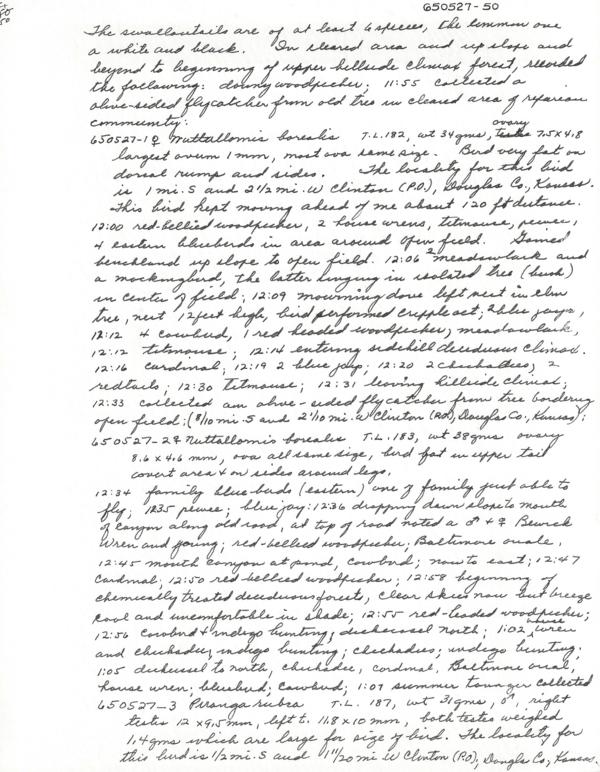 650527-50
The swallowtails are of at least 6 species, the common one
a white and black. In cleared area and up slope and
beyond to beginning of upper hillside climax forest, recorded
the following: downy woodpecker; 11:55 collected a
olive-sided flycatcher from old tree in cleared area of riparian
community:
650527-1♀ Nuttallornis borealis T.L. 182, wt 34 gms, ovary 7.5 x 4.8
largest ovum 1 mm, most ova same size. Bird very fat on
dorsal rump and sides. The locality for this bird
is 1 mi. S and 2 1/2 mi. W Clinton (P.O.), Douglas Co., Kansas.
This bird kept moving ahead of me about 120 ft distance.
12:00 red-bellied woodpecker, 2 house wrens, titmouse, pewee,
4 eastern bluebirds in area around open field. Gained
benchland up slope to open field. 12:06 2 meadowlark and
a mockingbird, the latter singing in isolated tree (bush)
in center of field; 12:09 mourning dove left nest in elm
tree, nest 12 feet high, bird performed cripple act; 2 blue jays,
12:12 4 cowbird, 1 red headed woodpecker, meadowlark,
12:12 titmouse; 12:14 entering sidehill deciduous climax.
12:16 cardinal; 12:19 2 blue jay; 12:20 2 chickadees, 2
redtails; 12:30 titmouse; 12:31 leaving hillside climax;
12:33 collected an olive-sided flycatcher from tree bordering
open field: (8/10 mi. S and 2 1/10 mi. W Clinton (P.O.), Douglas Co., Kansas):
650527-2♀ Nuttallornis borealis T.L. 183, wt 38 gms ovary
8.6 x 4.6 mm, ova all same size, bird fat in upper tail
covert area & on sides around legs.
12:34 family bluebirds (eastern) one of family just able to
fly; 1235 pewee; blue jay: 12:36 dropping down slope to mouth
of canyon along old road, at top of road noted a ♂ + ♀ Bewick
Wren and young; red-bellied woodpecker; Baltimore oriole,
12:45 mouth canyon at pond, cowbird; now to east; 12:47
Cardinal; 12:50 red bellied woodpecker; 12:58 beginning of
chemically treated deciduous forests, clear skies now but breeze
cool and uncomfortable in shade; 12:55 red-headed woodpecker;
12:56 Cowbird & indigo bunting; dickcissel north; 1:02 house wren
and chickadee, indigo bunting; chickadees; indigo bunting.
1:05 dickcissel to north, chickadee, cardinal, Baltimore oriole,
house wren; bluebird; Cowbird; 1:07 summer tanager collected
650527-3 Piranga rubra T.L. 187, wt 31 gms, ♂, right
testis 12 x 9.5 mm, left t. 11.8 x 10 mm, both testes weighed
1.4 gms which are large for size of bird. The locality for
this bird is 1/2 mi. S and 1 11/20 mi. W Clinton (P.O.), Douglas Co., Kansas.